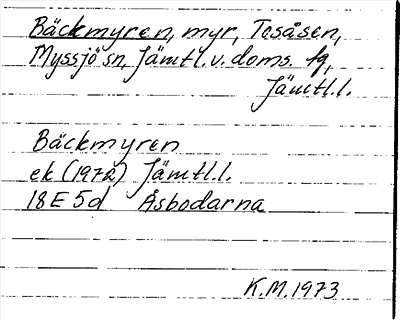 Bäckmyren, myr, Tosåsen,
Myssjö sn, Jämtl. v. doms. fg,
Jämtl. l.
Bäckmyren
ek (1972) Jämtl. l.
18E 5d Åsbodarna
K.M. 1973